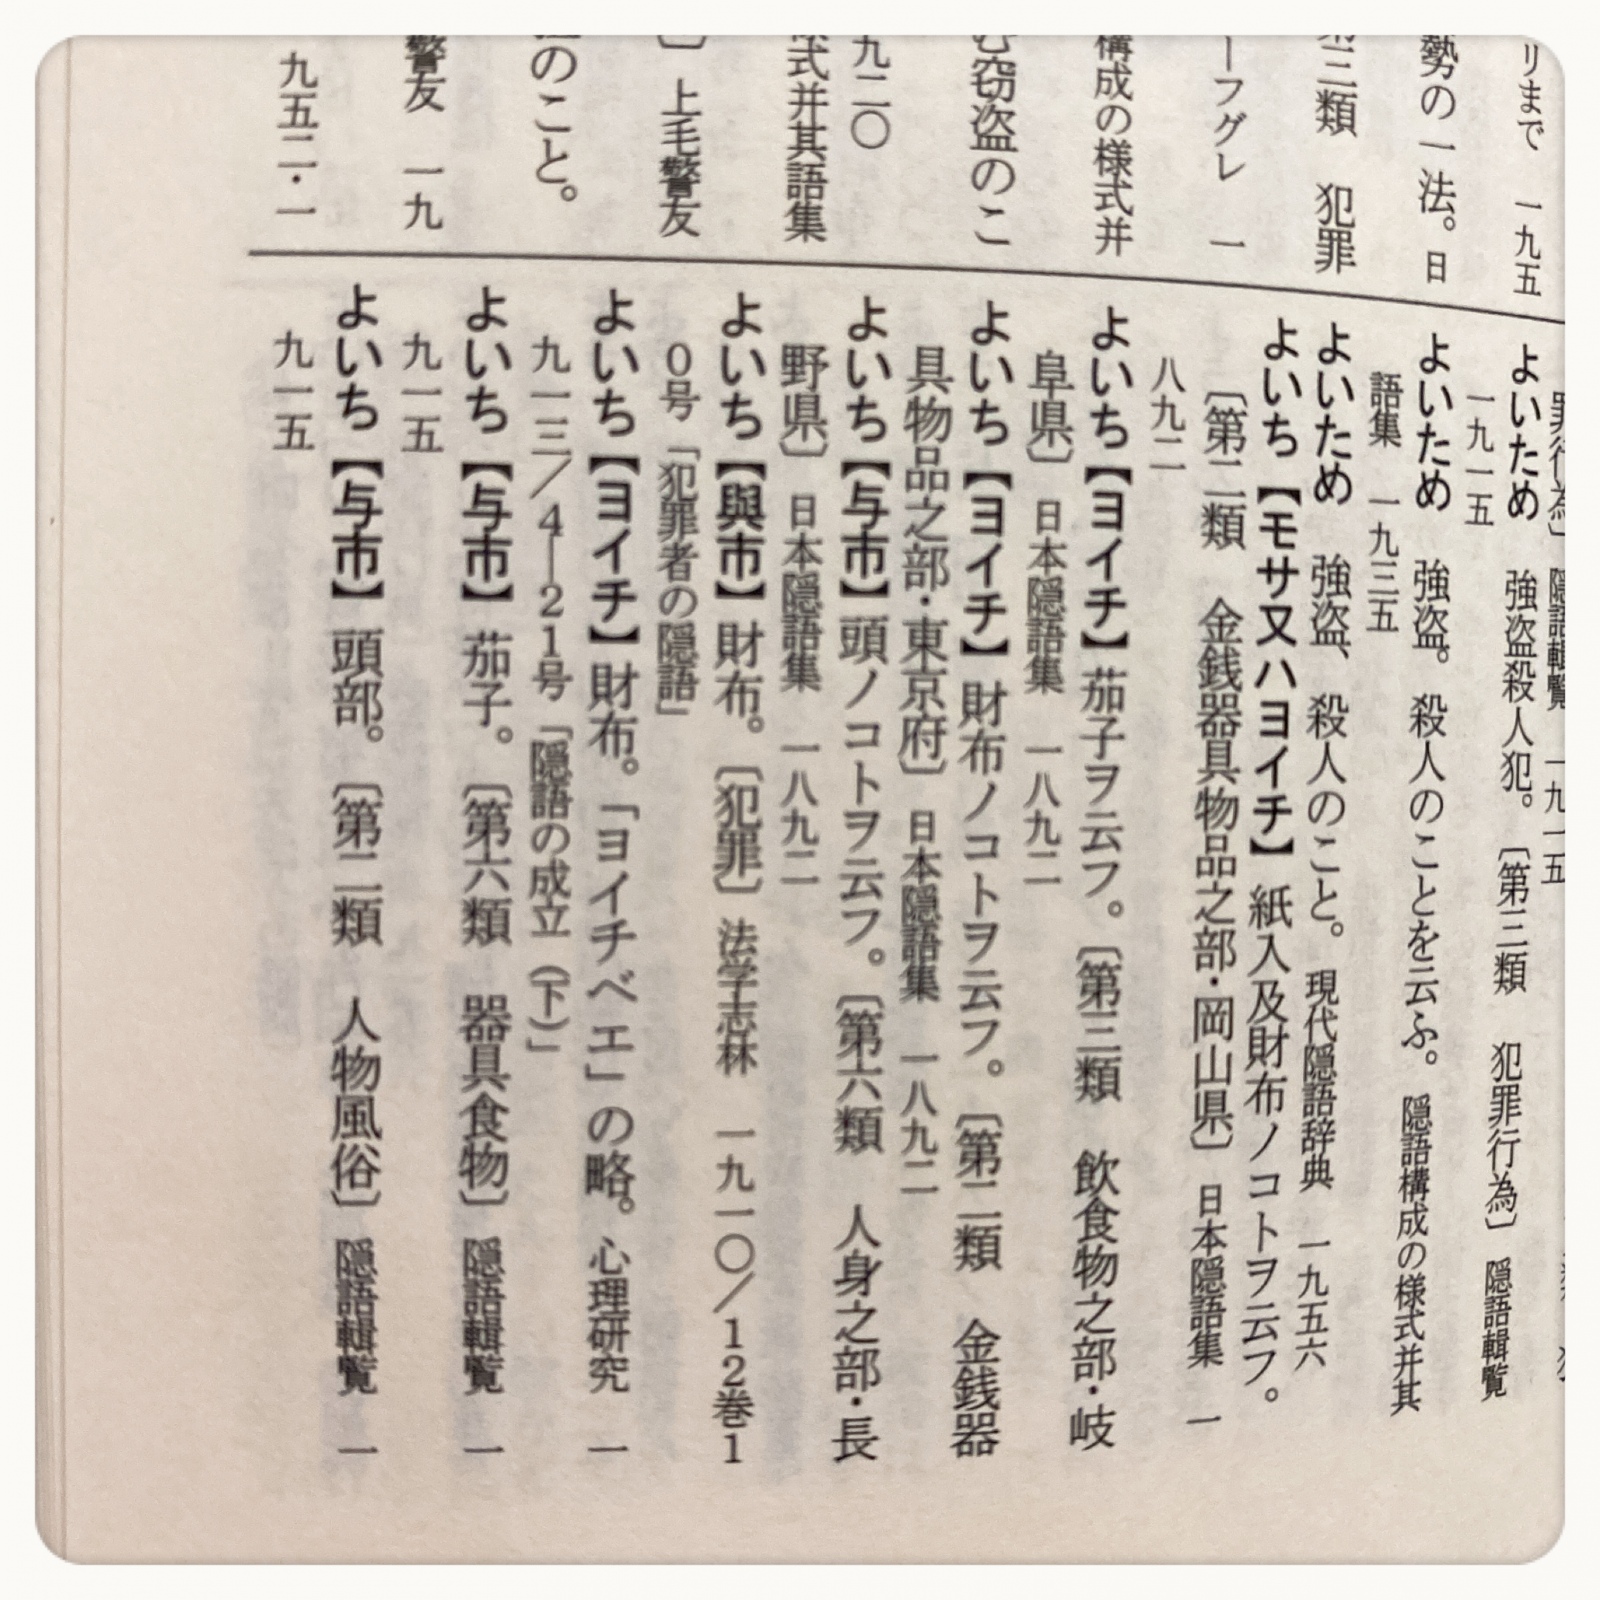 リまで　一九五
勢の一法。日
第三類　犯罪
ーフグレ　一
構成の様式并
む窃盗のこ
九二〇
様式并其語集
〕上毛警友
のこと。
警友　一九
九五二・一
罪行為〕隠語輯覧　一九一五
よいため　強盗殺人犯。〔第三類　犯罪行為〕隠語輯覧
一九一五
よいため　強盗。殺人のことを云ふ。隠語構成の様式并其
語集　一九三五
よいため　強盗、殺人のこと。現代隠語辞典　一九五六
よいち【モサ又ハヨイチ】紙入及財布ノコトヲ云フ。
〔第二類　金銭器具物品之部・岡山県〕日本隠語集　一
八九二
よいち【ヨイチ】茄子ヲ云フ。〔第三類　飲食物之部・岐
阜県〕日本隠語集　一八九二
よいち【ヨイチ】財布ノコトヲ云フ。〔第二類　金銭器
具物品之部・東京府〕日本隠語集　一八九二
よいち【与市】頭ノコトヲ云フ。〔第六類　人身之部・長
野県〕日本隠語集　一八九二
よいち【與市】財布。〔犯罪〕法学志林　一九一〇／12巻1
0号「犯罪者の隠語」
よいち【ヨイチ】財布。「ヨイチベエ」の略。心理研究　一
九一三／4—21号「隠語の成立（下）」
よいち【与市】茄子。〔第六類　器具食物〕隠語輯覧　一
九一五
よいち【与市】頭部。〔第二類　人物風俗〕隠語輯覧　一
九一五